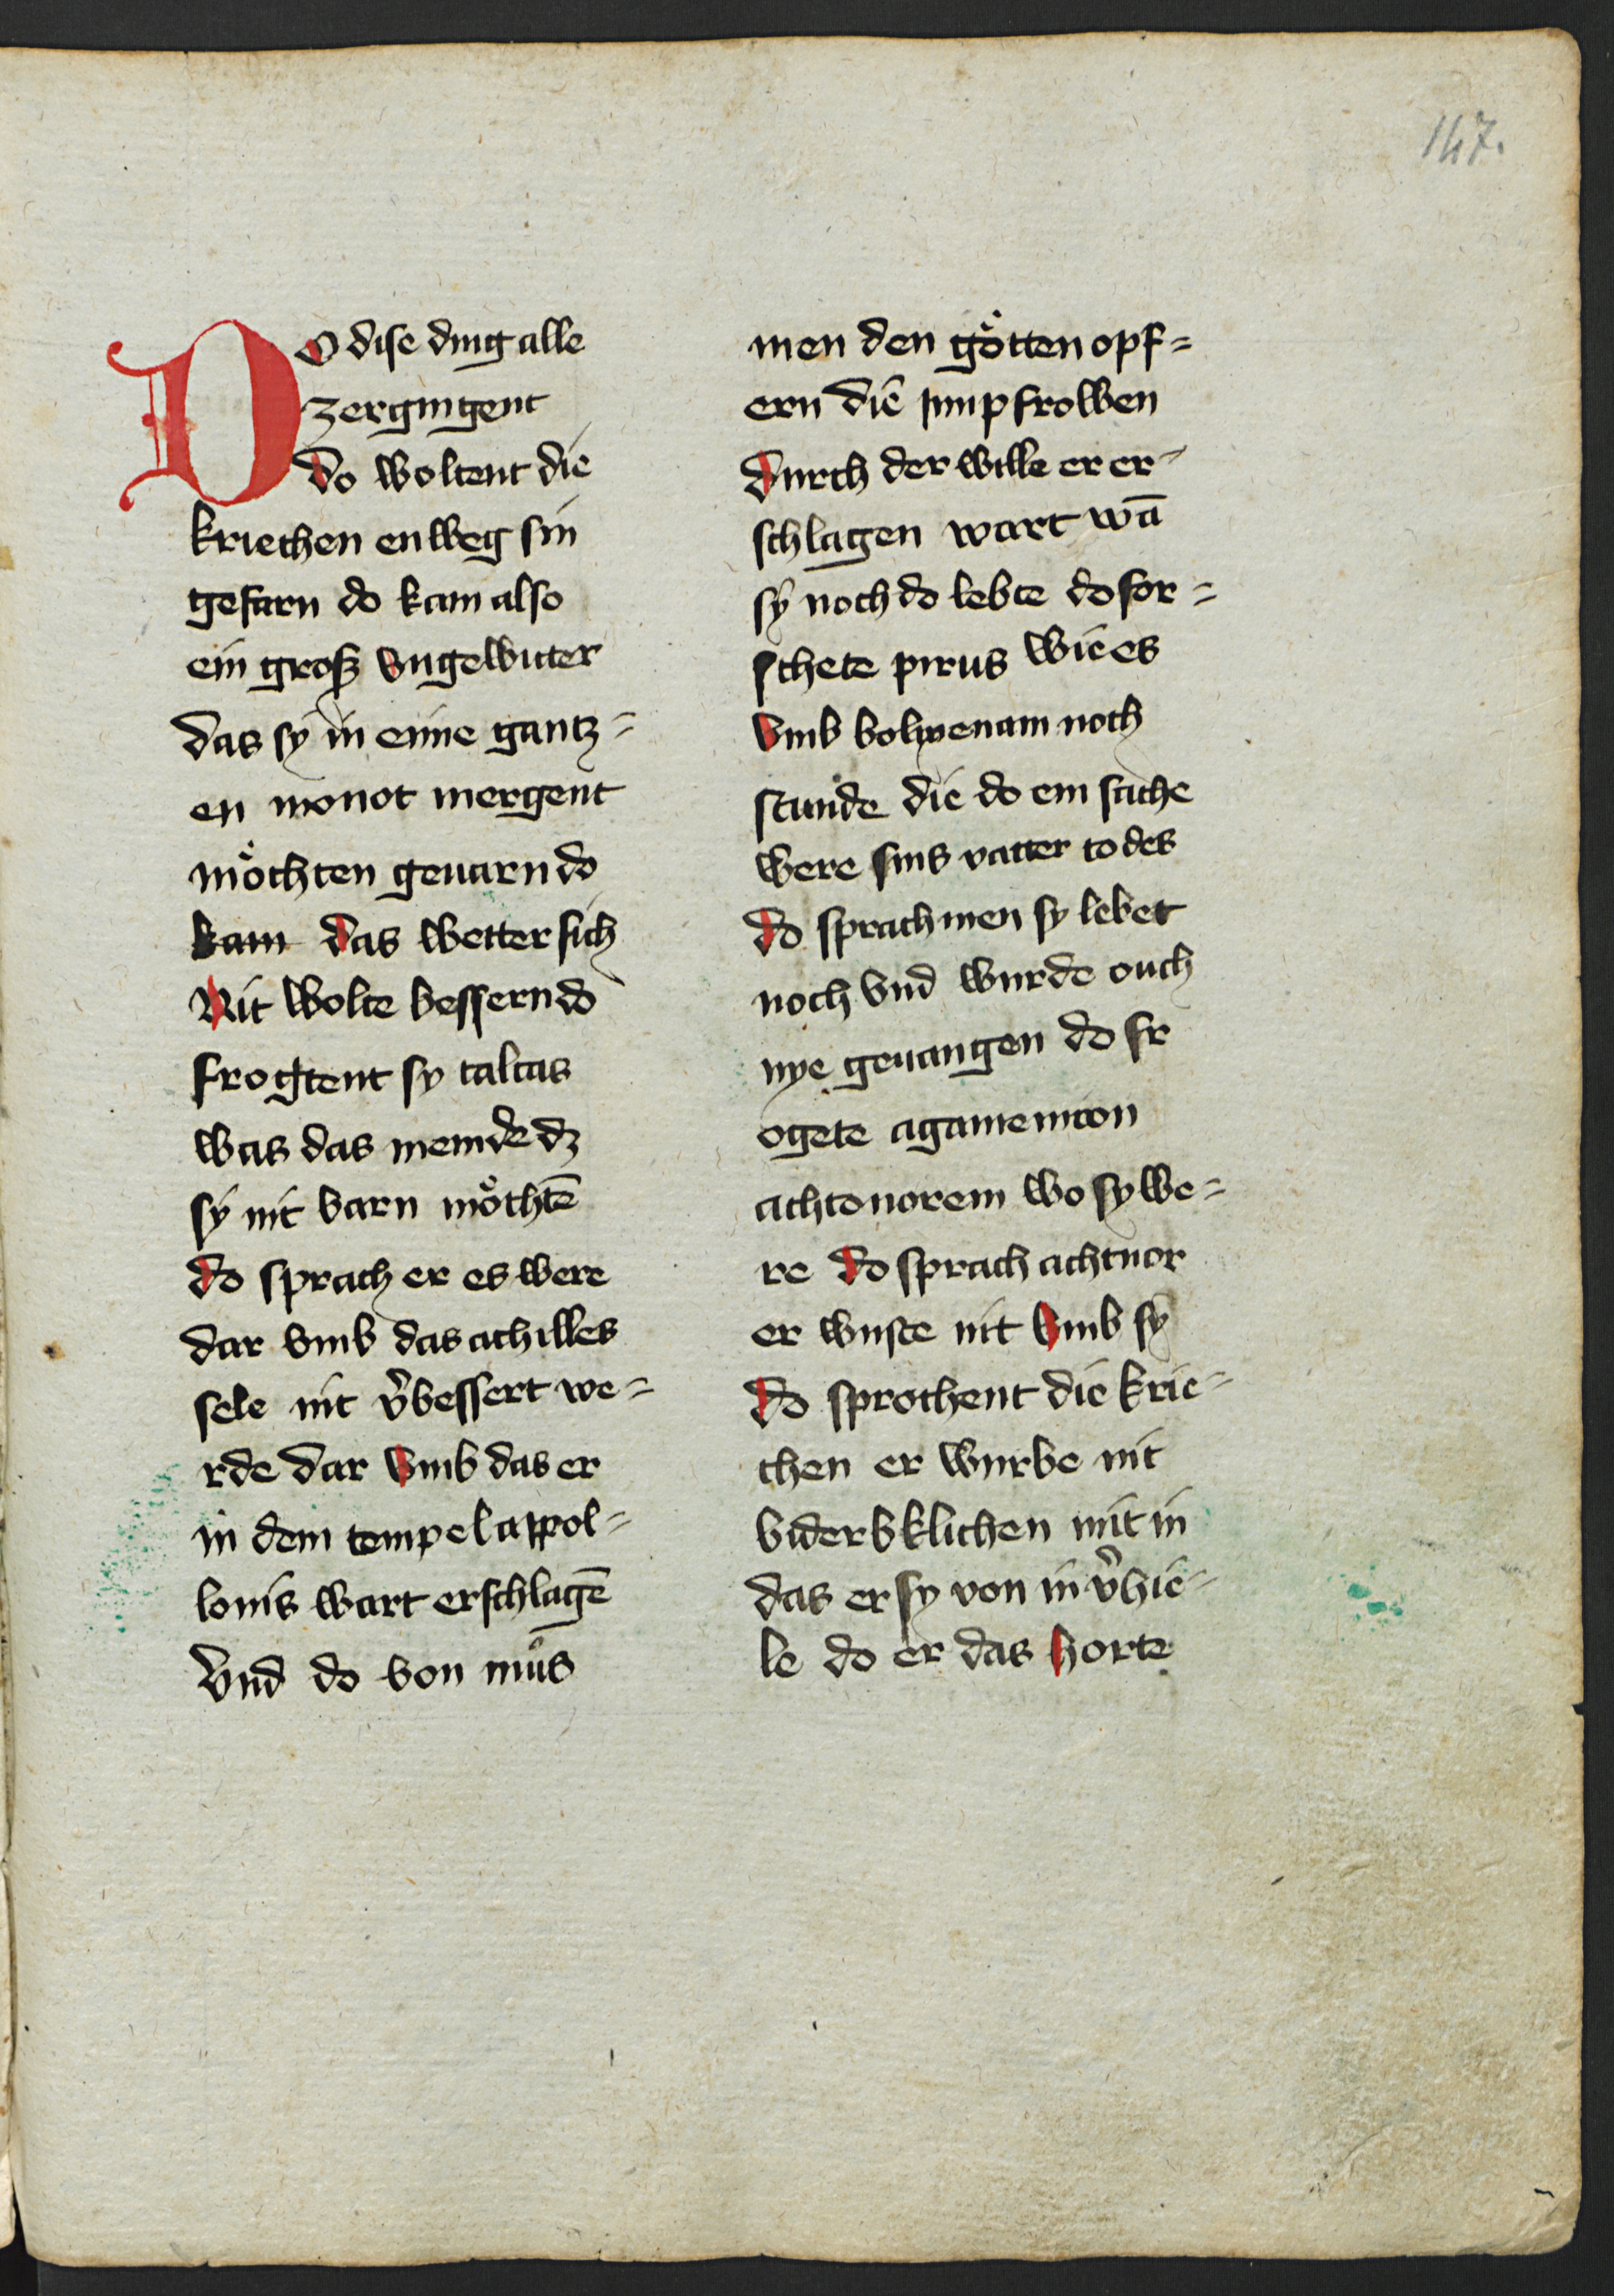 147.
DO dise ding alle
zergingent
do woltent die
kriechen enweg sin
gefarn do kam also
ein groß vngewitter
das sÿ in eime gantz=
en monot niergent
moͤchten geuarn do
kam das wetter sich
Nit wolte bessern do
frogtent sy calcas
was das meinde dz
sÿ nit varn moͤchtē
do sprach er es were
dar vmb das achilles
sele nit v̓bessert we=
rde dar vmb das er
in dem tempel appol=
lonis wart erschlagē
Vnd do von muͦs
men den goͤtten opf=
ern die junpfrowen
durch der wille er er=
schlagen wart wā
sÿ noch do lebte do for=
schete pirus wie es
vmb bolixenam noch
stuͤnde die do ein sache
were sins vatter todes
do sprach men sy lebet
noch vnd wurde ouch
nye geuangen do fr
ogete agamemnon
achtonorem wo sy we=
re do sprach achtnor
er wuste nit vmb sÿ
do sprochent die krie=
chen er wurbe nit
biderbklichen mit in
das er sy von in v̓hie=
le do er das horte